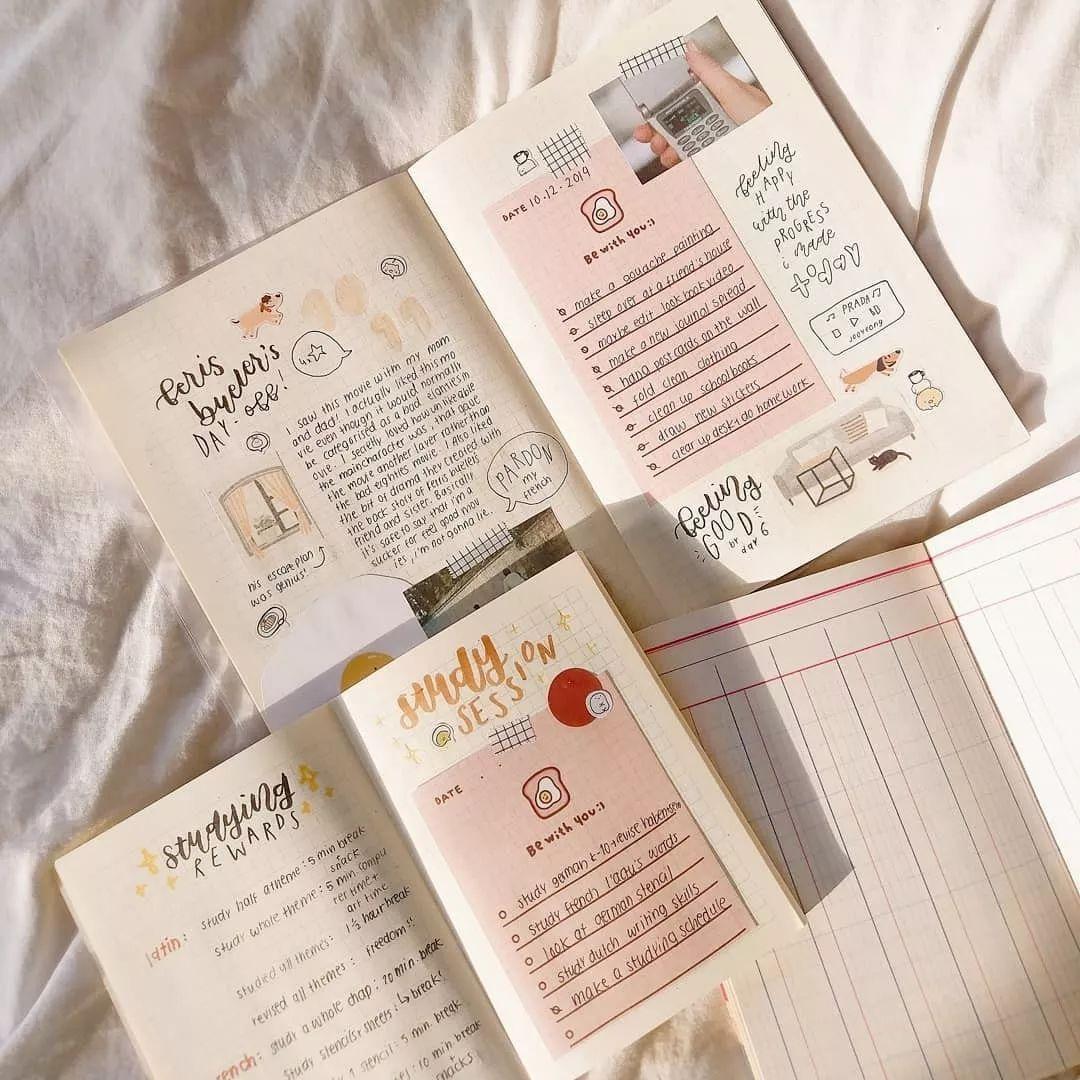 beris
bueler's
DAY-OBB!
I saw this movie with my mom
and dad. I actually liked this mo
vie even though it would normally
be categorised as a bad eighties m
ovie. I secretly loved how unlivable
the maincharacter was, that gave
the movie another layer rather than
the bad eighties movie. I also liked
the bit of drama they created with
the back story of Ferris buelers
friend and sister. Basically
it's safe to say that i'm a
sucker for feel good mov
ies, i'm not gonna lie.
PARDON
my
french
his escape plan
was genius!
DATE 10.12.2019
Be with you:)
make a gouache painting
sleep over at a friend's house
maybe edit lookbook video
make a new journal spread
hang postcards on the wall
fold clean clothing
clean up schoolbooks
draw new stickers
clear up desk + do homework
feeling
HAPPY
with the
PROGRESS
i made
♫ PRADA ♫
jooyeong
feeling
GOOD
day 6
study
SESSION
DATE
Be with you:)
study german t-10 + revise
study french
look at german stencil
study dutch writing skills
make a studying schedule
studying
REWARDS
latin: study half a theme: 5 min break
snack
study whole theme: 5 min. compu
ter time +
art time
studied all themes: 1 ½ hour break
revised all themes: freedom!!
rench: study a whole chap: 20 min. break
study stencils + sheets: ↳ break!
stencil: 5 min. break
10 min break
snacks!